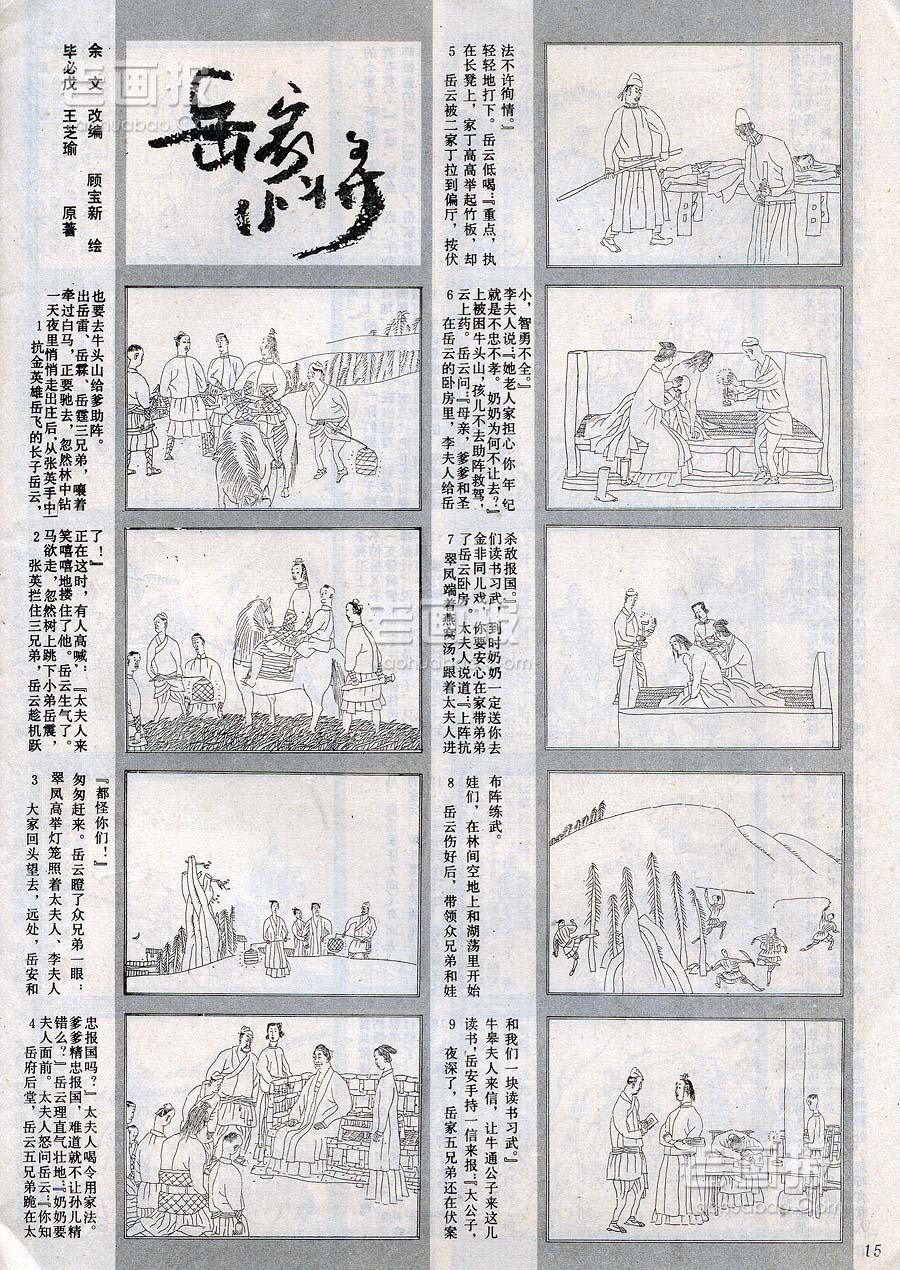 岳家小将
毕必成 王芝瑜 原著
余 文 改编 顾宝新 绘
1 抗金英雄岳飞的长子岳云,
一天夜里悄悄走出庄后,从张英手中
牵过白马,正要驰去,忽然林中钻
出岳雷、岳霖、岳霆三兄弟,嚷着
也要去牛头山给爹助阵。
2 张英拦住三兄弟,岳云趁机跃
马欲走,忽然树上跳下小弟岳震,
笑嘻嘻地搂住了他。岳云生气了。
正在这时,有人高喊:『太夫人来
了!』
3 大家回头望去,远处,岳安和
翠凤高举灯笼照着太夫人、李夫人
匆匆赶来。岳云瞪了众兄弟一眼:
『都怪你们!』
4 岳府后堂,岳云五兄弟跪在太
夫人面前。太夫人怒问岳云:『你知
错么?』岳云理直气壮地:『奶奶要
爹爹精忠报国,难道就不让孙儿精
忠报国吗?』太夫人喝令用家法。
5 岳云被二家丁拉到偏厅,按伏
在长凳上,家丁高高举起竹板,却
轻轻地打下。岳云低喝:『重点,执
法不许徇情。』
6 在岳云的卧房里,李夫人给岳
云上药。岳云问:『母亲,爹爹和圣
上被困牛头山,孩儿不去助阵救驾,
就是不忠不孝。奶奶为何不让去?』
李夫人说:『她老人家担心你年纪
小,智勇不全。』
7 翠凤端着燕窝汤,跟着太夫人进
了岳云卧房。太夫人说道:『上阵抗
金非同儿戏。你要安心在家带弟弟
们读书习武,到时奶奶一定送你去
杀敌报国。』
8 岳云伤好后,带领众兄弟和娃
娃们,在林间空地上和湖荡里开始
布阵练武。
9 夜深了,岳家五兄弟还在伏案
读书,岳安手持一信来报:『大公子,
牛皋夫人来信,让牛通公子来这儿
和我们一块读书习武。』
15
老画报
laohuabao.com